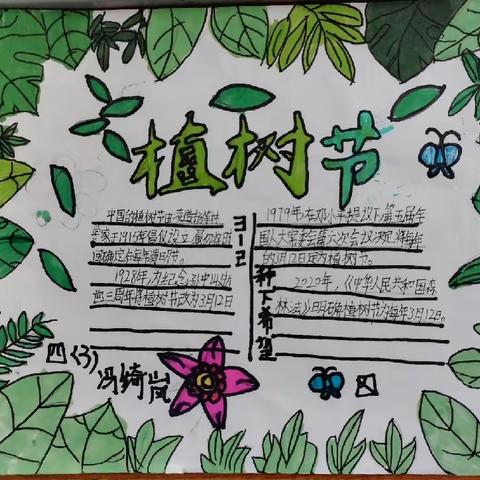 植树节
中国的植树节由凌道扬等林
学家于1915年倡仪设立，最初将时
间确定在每年清明节。
1928年，为纪念孙中山逝
世三周年将植树节改为3月12日
3-12
种下希望
1979年，在邓小平提议下，第五届全
国人大常委会第六次会议决定将每年
的3月12日定为植树节。
2020年，《中华人民共和国森
林法》明确植树节为每年3月12日。
四(3)
冯绮岚